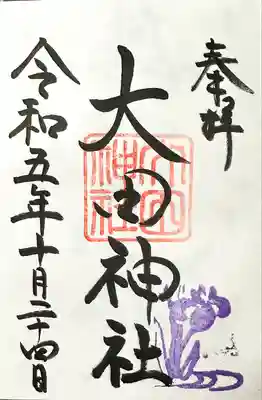 奉拝
大田神社
令和五年十月二十四日